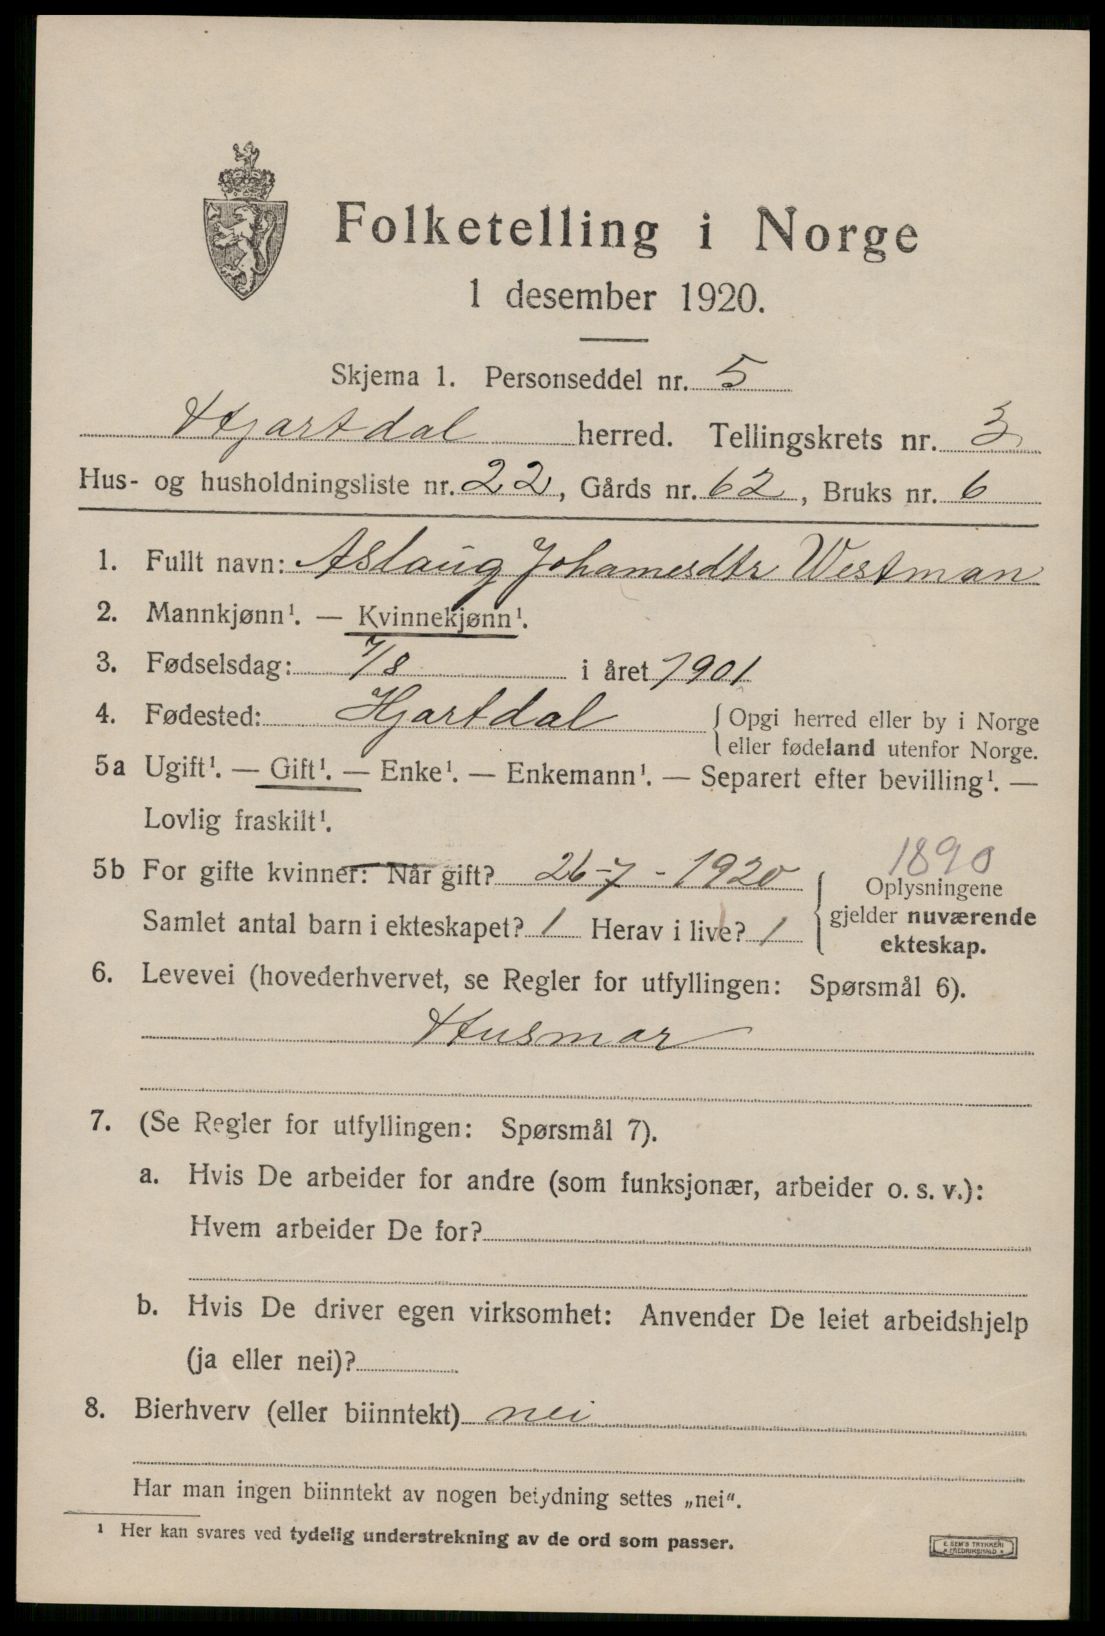 Folketelling i Norge
1 desember 1920.
Skjema 1. Personseddel nr. 5
Hjartdal herred. Tellingskrets nr. 3
Hus- og husholdningsliste nr. 22, Gårds nr. 62, Bruks nr. 6
1. Fullt navn: Aslaug Johamesdtr Westman
2. Mannkjønn¹. — Kvinnekjønn¹.
3. Fødselsdag: 7/8 i året 1901
4. Fødested: Hjartdal { Opgi herred eller by i Norge
eller fødeland utenfor Norge.
5a Ugift¹. — Gift¹. — Enke¹. — Enkemann¹. — Separert efter bevilling¹. —
Lovlig fraskilt¹.
1890
5b For gifte kvinner: Når gift? 26-7-1920 { Oplysningene
gjelder nuværende
ekteskap.
Samlet antal barn i ekteskapet? 1 Herav i live? 1
6. Levevei (hovederhvervet, se Regler for utfyllingen: Spørsmål 6).
Husmor
7. (Se Regler for utfyllingen: Spørsmål 7).
a. Hvis De arbeider for andre (som funksjonær, arbeider o. s. v.):
Hvem arbeider De for?
b. Hvis De driver egen virksomhet: Anvender De leiet arbeidshjelp
(ja eller nei)?
8. Bierhverv (eller biinntekt) nei
Har man ingen biinntekt av nogen betydning settes „nei“.
¹ Her kan svares ved tydelig understrekning av de ord som passer.
E. SEM'S TRYKKERI
FREDRIKSHALD